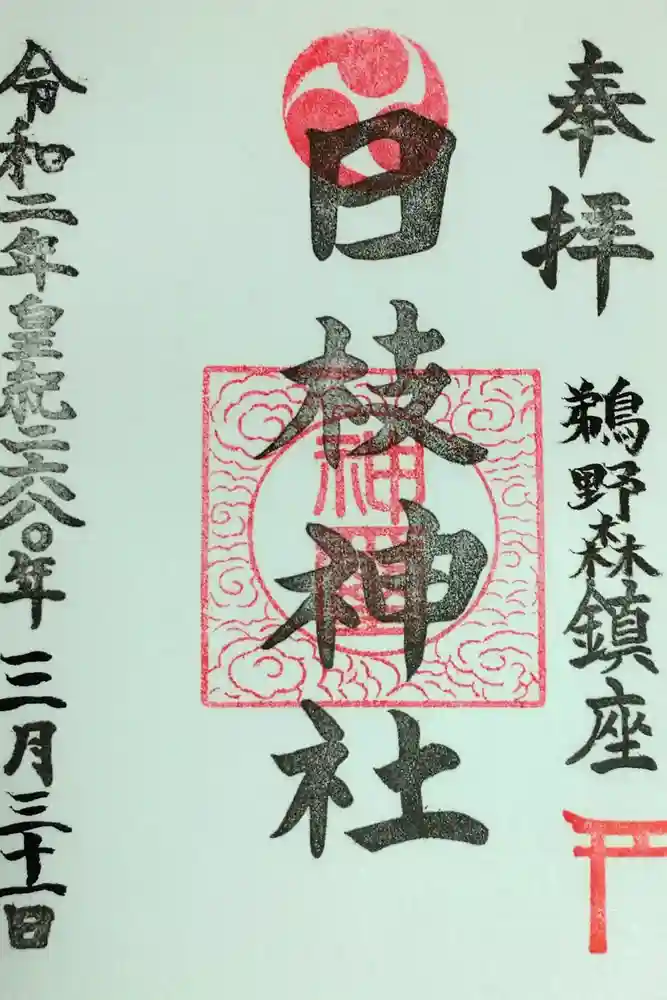 奉拝
鵜野森鎮座
日枝神社
神
令和二年皇紀二六八〇年三月三十一日